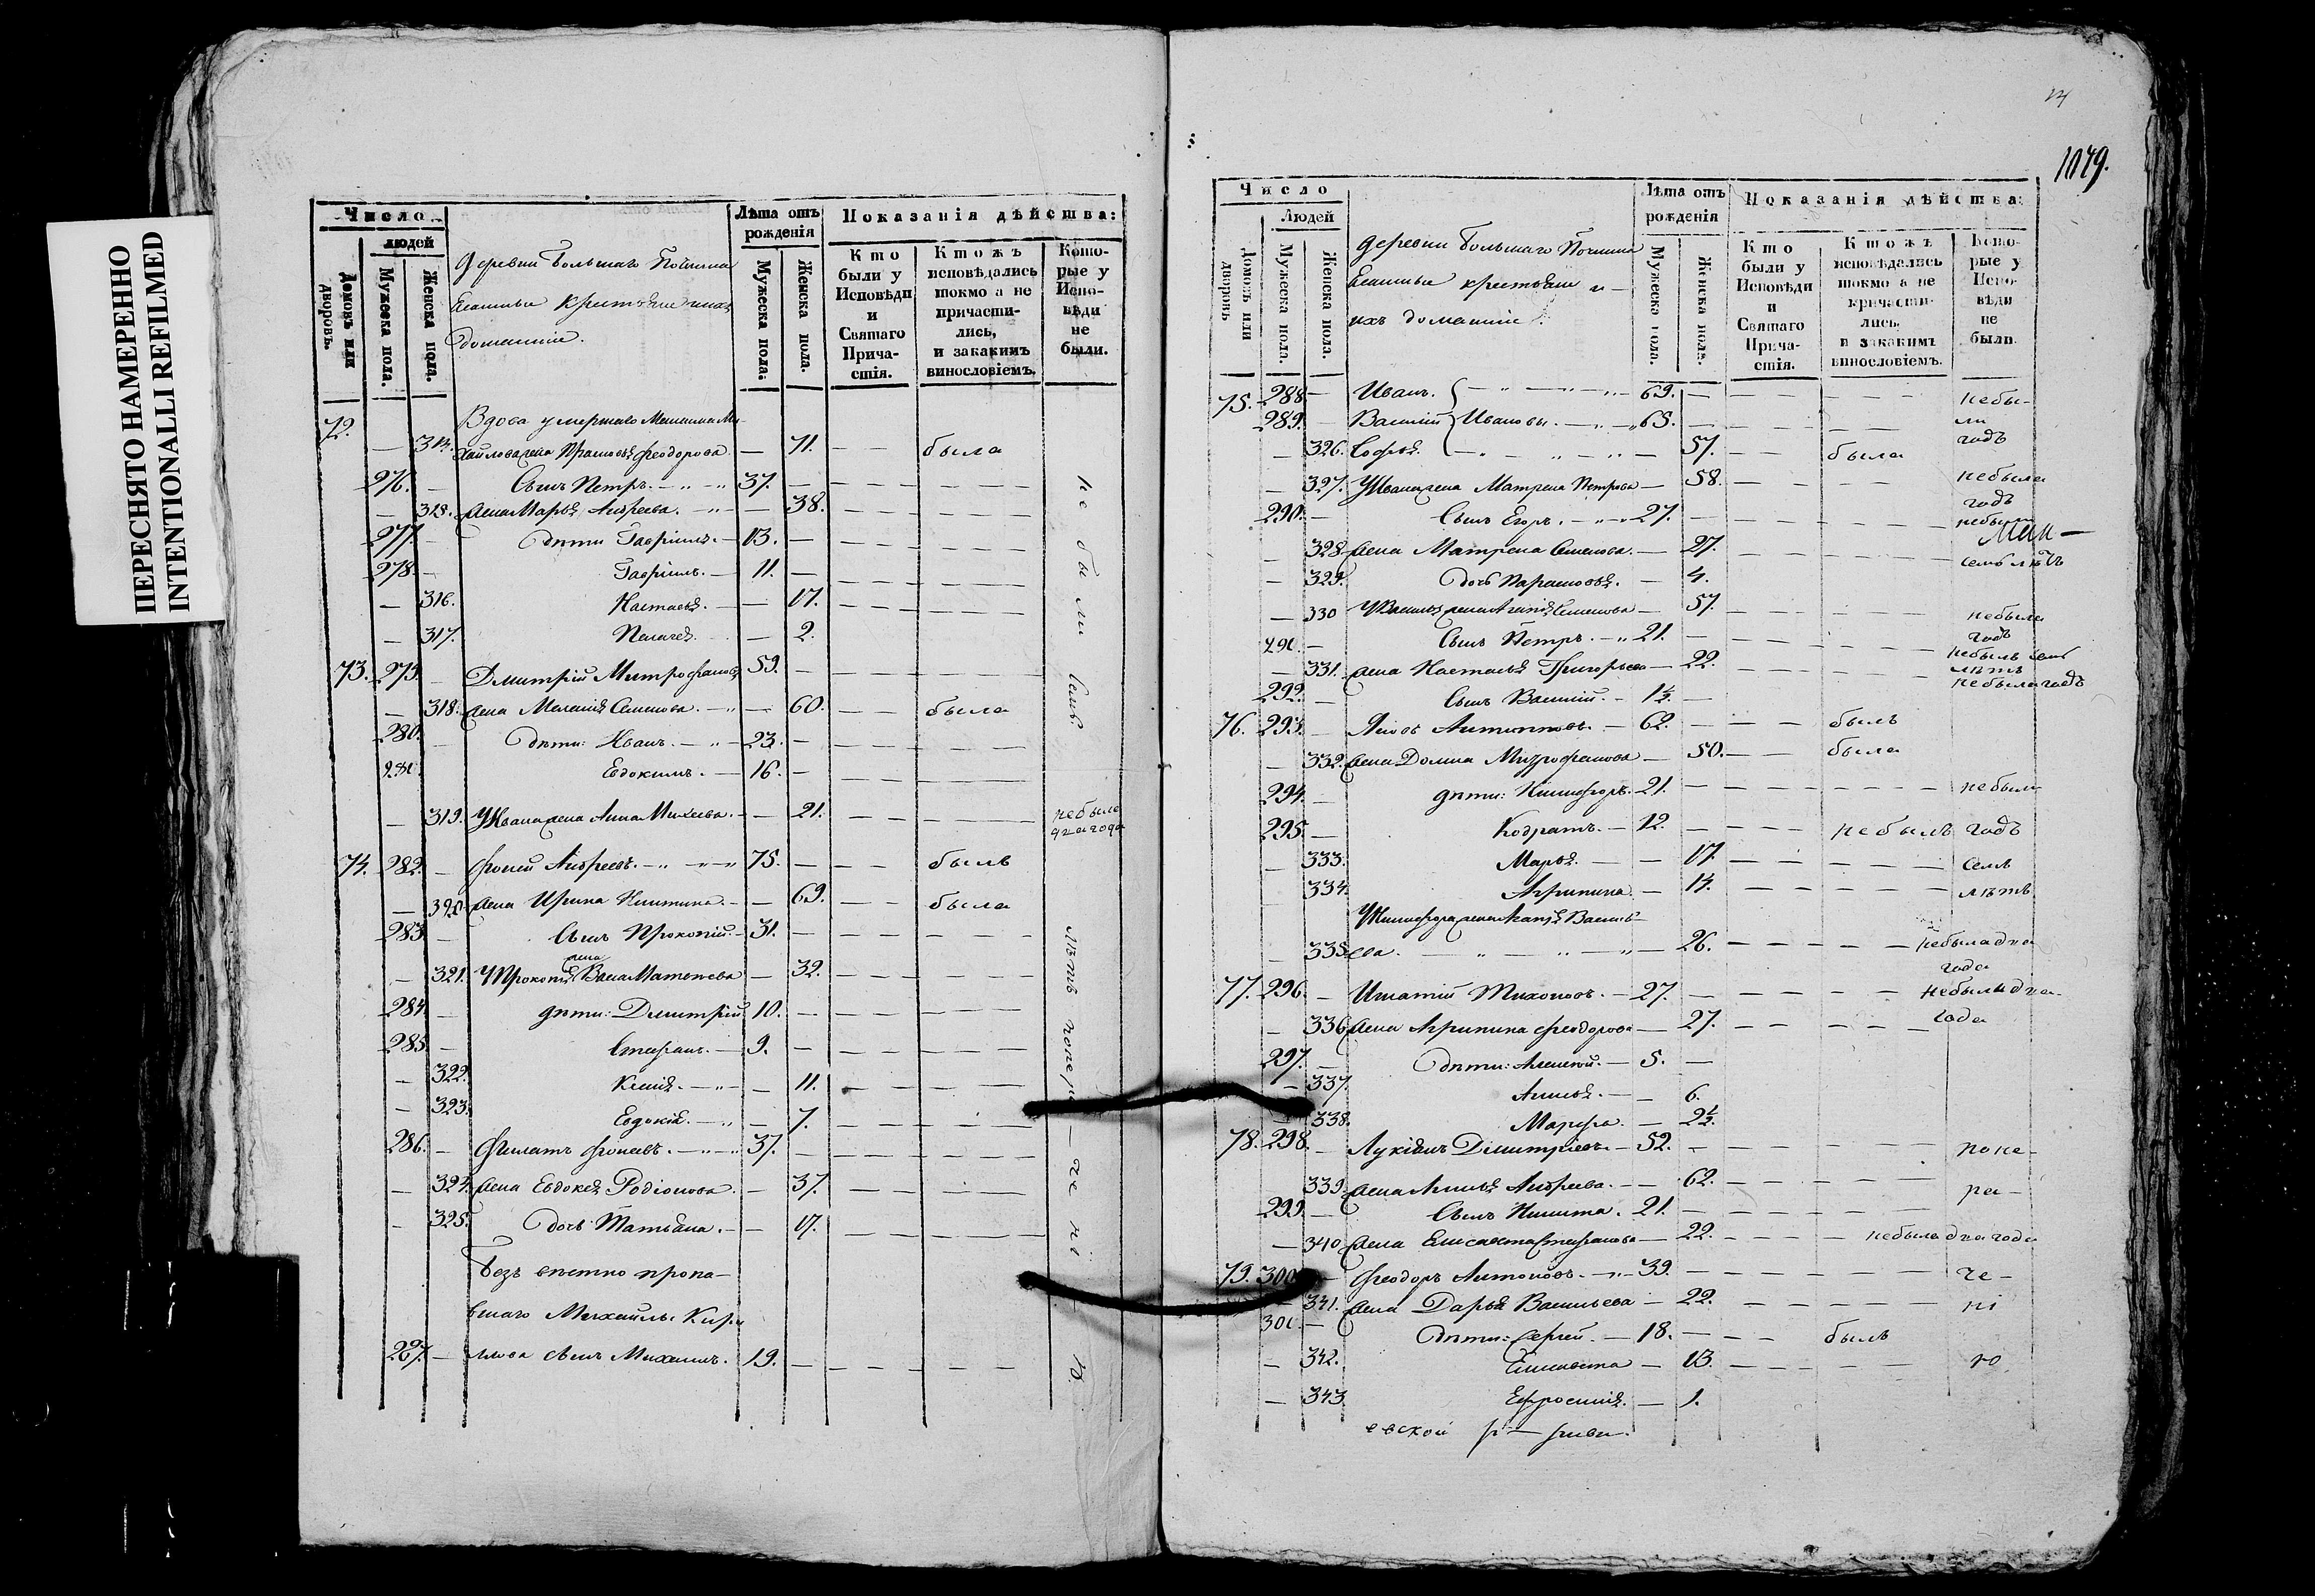 ПЕРЕСНЯТО НАМЕРЕННО
INTENTIONALLI REFILMED
Число
людей
Домовъ или дворовъ.
Мужеска пола.
Женска пола.
деревни Большаго Починка
крестьяне и ихъ
домашніе.
Лѣта отъ рожденія
Мужеска пола.
Женска пола.
Показанія дѣйства:
Кто были у Исповѣди и Святаго Прича-стія.
Ктожъ исповѣдались токмо а не причасти-лись, и закакимъ винословіемъ.
Кото-рые у Испо-вѣди не были.
72. Вдова умершаго Максима Ми-
— 314. хайлова жена Прасковья Феодорова — 71. — — была
276. — Сынъ Петръ. 37. —
— 315. жена Марья Андреева. — 38.
277. — дѣти Гавріилъ. 13. —
278. — Гавріилъ. 11. —
— 316. Настасья. — 17.
— 317. Пелагея. — 2.
73. 279. — Дмитрій Митрофановъ 59. —
— 318. жена Меланія Семенова. — 60. — — была
280. — дѣти: Иванъ. 23. —
281. Евдокимъ. 16. —
— 319. У Ивана жена Анна Михеева. — 21. не была
4 года
74. 282. — Фокей Андреевъ. 75. — — — былъ
— 320. жена Ирина Никитина. — 69. — — была
283. — Сынъ Прокопій. 31. —
жена
— 321. У Прокопія Матвеева — 32.
284. — дѣти: Димитрій 10. —
285. — Стефанъ. 9. —
— 322. Ксенія. — 11.
— 323. Евдокія. — 7.
286. — Филатъ Фокеевъ. 37. —
— 324. жена Евдокея Родіонова. — 37.
— 325. дочь Татьяна. — 17.
Безъ вѣстно пропа-
вшаго Михайлы Кири
287. — ллова сынъ Михаилъ. 19. —
не бы ли семь лѣтъ по не ра — че ні — ю.
1079.
Число
Людей
Домовъ или дворовъ
Мужеска пола.
Женска пола.
деревни Большаго Починка
крестьяне и
ихъ домашніе.
Лѣта отъ рожденія
Мужеска пола.
Женска пола.
Показанія дѣйства:
Кто были у Исповѣди и Святаго Прича-стія.
Ктожъ исповѣдались токмо а не причасти-лись, и закакимъ винословіемъ.
Кото-рые у Испо-вѣди не были.
75. 288. — Иванъ. 69. — небы-
289. — Василій Ивановы. 65. — ли
— 326. Софья. — 57. — — была годъ
— 327. У Ивана жена Матрена Петрова — 58. небыла
годъ
290. — Сынъ Егоръ. 27. —
— 328. жена Матрена Семенова. — 27.
семь лѣтъ
— 329. дочь Парасковья. — 4.
— 330 У Василья жена Семенова — 57. небыла
годъ
291. — Сынъ Петръ. 21. — небылъ семь
лѣтъ
— 331. жена Настасья Григорьева — 22. небыла годъ
292. — Сынъ Василій. 1½ —
76. 293. — Яковъ Антиповъ. 62. — — — былъ
— 332. жена Домна Митрофанова — 50. — — была
294. — дѣти: Никифоръ. 21. — небыли
295. — Кодратъ. 12. — небылъ годъ
— 333. Марья. — 17. семь
— 334. Агрипина. — 14. лѣтъ
У Никифора жена Василь-
— 335. ева. — 26. небыла два
года
77. 296. — Игнатій Тихоновъ. 27. — небыли два
— 336. жена Агрипина Феодорова — 27. года
297. — дѣти: Алексѣй. 5. —
— 337. — 6.
— 338. Марфа. — 2½.
78. 298. — Лукіянъ Димитріевъ. 52. — по не-
— 339. жена Андреева. — 62. ра-
299. — Сынъ Никита. 21. —
— 340. жена Елисавета Стефанова — 22. небыла два года
79. 300. — Феодоръ Антоновъ. 39. — че-
— 341. жена Дарья Васильева — 22. ні
301. — дѣти: Сергей. 18. — — — былъ
— 342. Елисавета — 13. ю
— 343. Ефросинія. — 1.